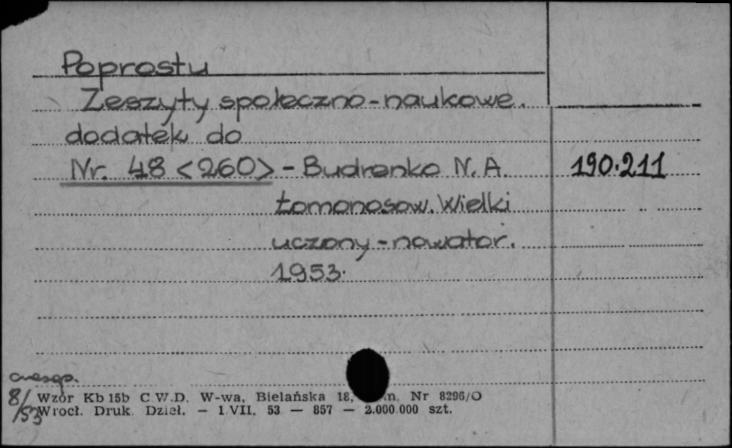 Poprostu
Zeszyty społeczno-naukowe.
dodatek do
Nr. 48 <260> - Budrenko N.A. 190.211
Łomonosow. Wielki
uczony - nowator.
1953.
8/53
Wzór Kb 15b C W.D. W-wa, Bielańska 18, Nr 8296/O
Wrocł. Druk. Dział. — 1 VII. 53 — 857 — 2.000 000 szt.